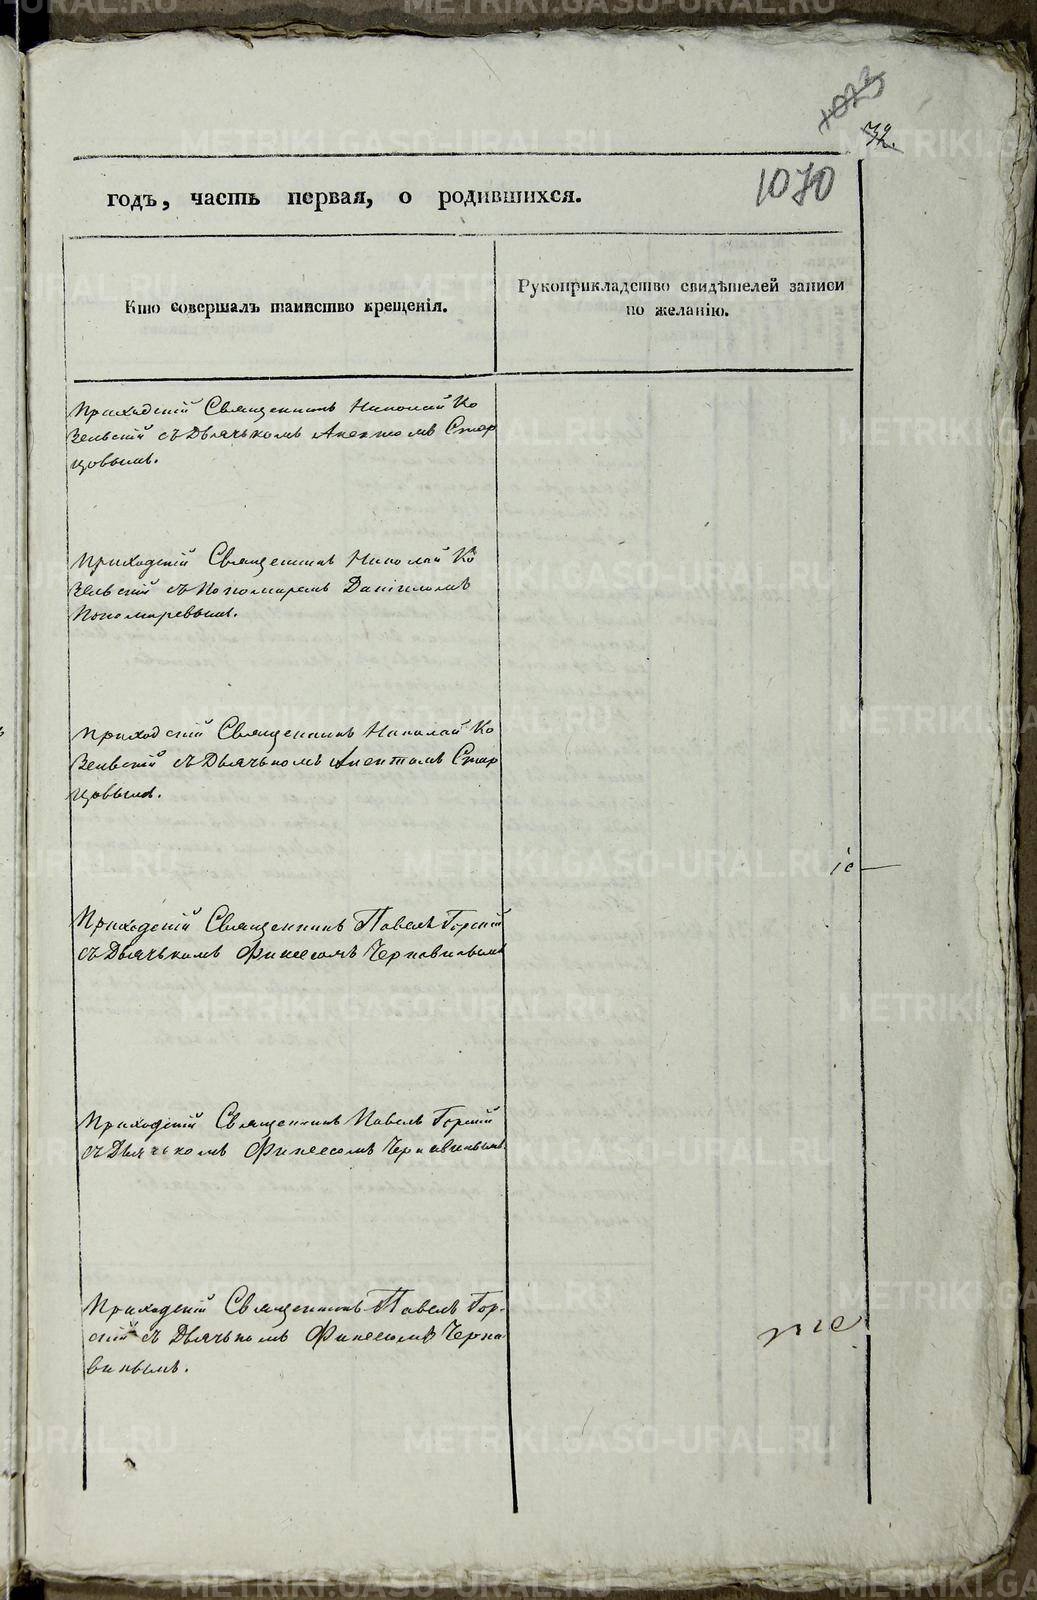 1070
годъ, часть первая, о родившихся.
Кто совершалъ таинство крещенія.
Рукоприкладство свидѣтелей записи
по желанію.
Приходскій Священникъ Николай Ко
зельскій съ Дьячькомъ Анектомъ Стар
цовымъ.
Приходскій Священникъ Николай Ко
зельскій съ Пономаремъ Даніиломъ
Пономаревымъ.
Приходскій Священникъ Николай Ко
зельскій съ Дьячькомъ Анектомъ Стар
цовымъ.
Приходскій Священникъ Павелъ Горскій
съ Дьячькомъ Финеесомъ Чернавинымъ
Приходскій Священникъ Павелъ Горскій
съ Дьячькомъ Финеесомъ Чернавинымъ.
Приходскій Священникъ Павелъ Гор-
скій съ Дьячькомъ Финеесомъ Черна
винымъ.
METRIKI.GASO-URAL.RU